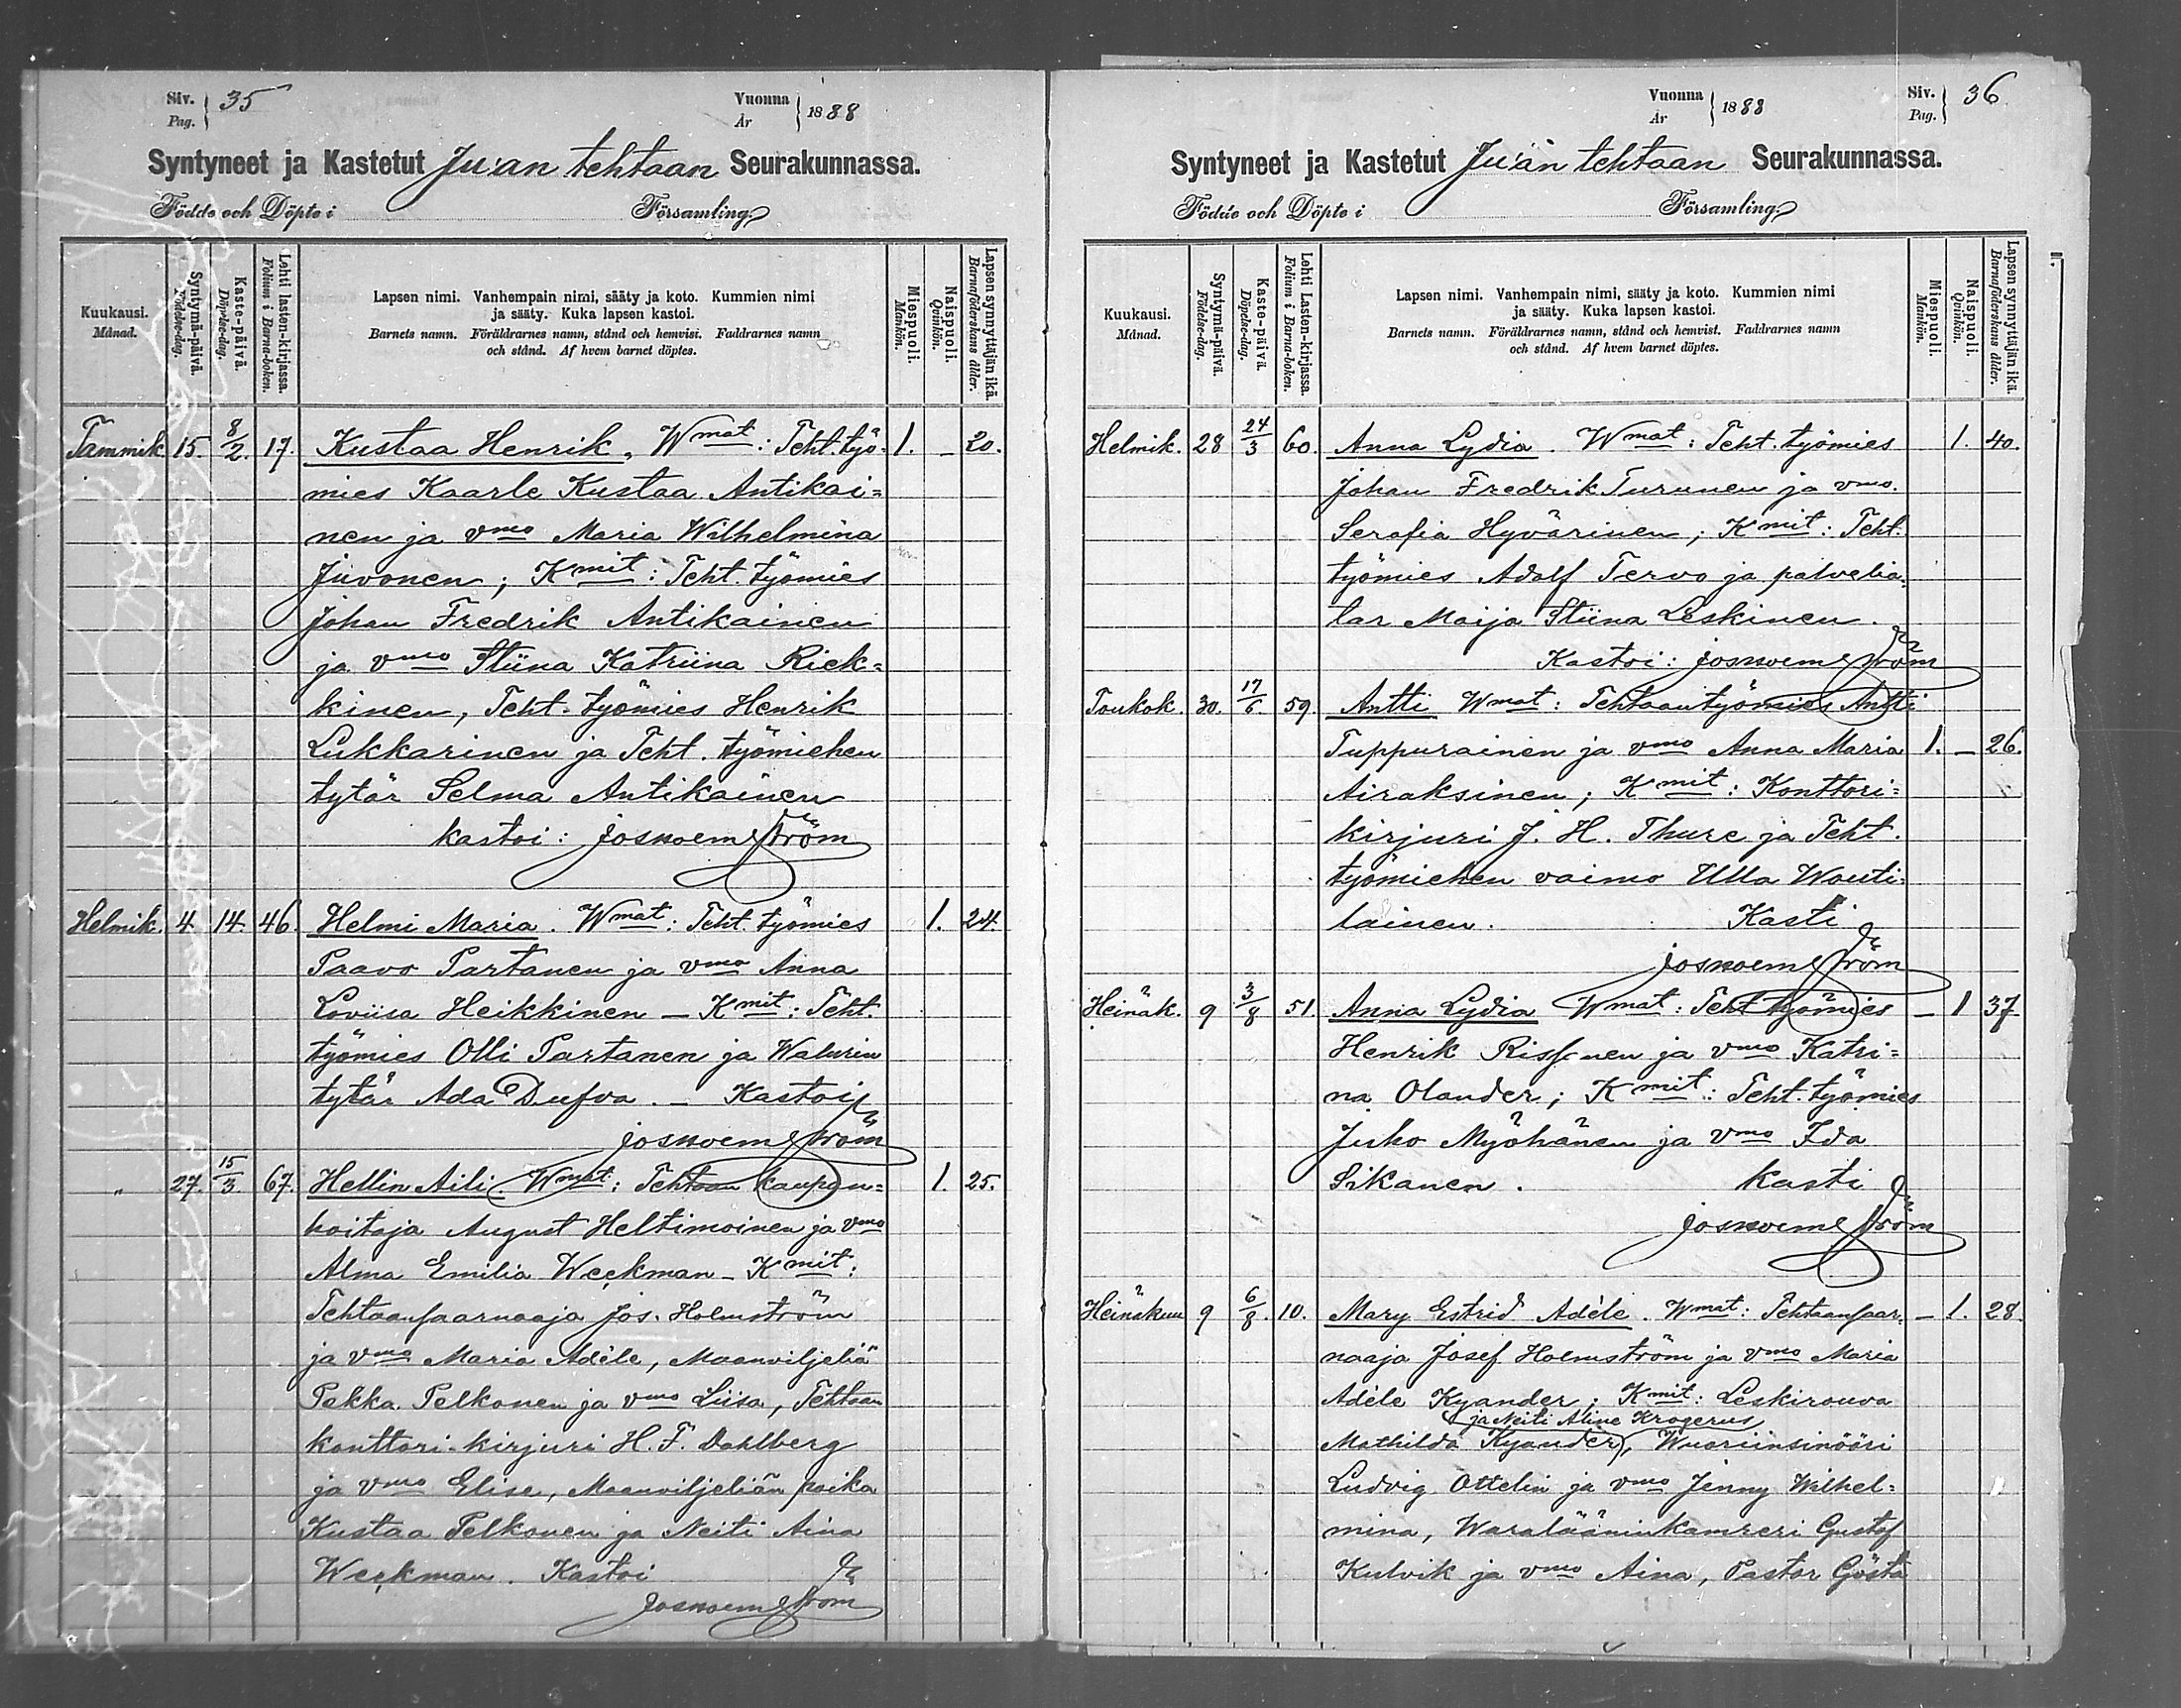 Siv. Pag. 35
Vuonna År 1888
Syntyneet ja Kastetut Juan tehtaan Seurakunnassa.
Födde och Döpte i Församling.
Kuukausi. Månad.
Syntymä-päivä. Födelse-dag.
Kaste-päivä. Döpelse-dag.
Lehti lasten-kirjassa. Folium i Barna-boken.
Lapsen nimi. Vanhempain nimi, sääty ja koto. Kummien nimi
ja sääty. Kuka lapsen kastoi.
Barnets namn. Föräldrarnes namn, stånd och hemvist. Faddrarnes namn
och stånd. Af hvem barnet döptes.
Miespuoli. Mankön.
Naispuoli. Qvinkön.
Lapsen synnyttäjän ikä. Barnaföderskans ålder.
Tammik. 15. 8/2. 17. Kustaa Henrik. Wmat: Teht. työ- 1. – 20.
mies Kaarle Kustaa Antikai=
nen ja vmo Maria Wilhelmina
Juvonen; Kmit: Teht. työmies
Johan Fredrik Antikainen
ja vmo Stiina Katriina Riek=
kinen, Teht. työmies Henrik
Lukkarinen ja Teht. työmiehen
tytär Selma Antikainen
kastoi: Jos Holmström
Helmik. 4 14. 46. Helmi Maria. Wmat: Teht. työmies 1. 24.
Paavo Partanen ja vmo Anna
Loviisa Heikkinen – Kmit: Teht.
työmies Olli Partanen ja Walurin
tytär Ada Dufva. – Kastoi
Jos Holmström
„ 27. 15/3. 67. Hellin Aili. Wmat: Tehtaan kaupan= 1. 25.
hoitaja August Heltimoinen ja vmo
Alma Emilia Weckman – Kmit:
Tehtaansaarnaaja Jos. Holmström
ja vmo Maria Adèle, Maanviljeliä
Pekka Pelkonen ja vmo Liisa, Tehtaan
konttori-kirjuri H. F. Dahlberg
ja vmo Elise, Maanviljeliän poika
Kustaa Pelkonen ja Neiti Aina
Weckman. Kastoi
Jos Holmström
Vuonna År 1888
Siv. Pag. 36
Syntyneet ja Kastetut Juan tehtaan Seurakunnassa.
Födde och Döpte i Församling.
Kuukausi. Månad.
Syntymä-päivä. Födelse-dag.
Kaste-päivä. Döpelse-dag.
Lehti Lasten-kirjassa. Folium i Barna-boken.
Lapsen nimi. Vanhempain nimi, sääty ja koto. Kummien nimi
ja sääty. Kuka lapsen kastoi.
Barnets namn. Föräldrarnes namn, stånd och hemvist. Faddrarnes namn
och stånd. Af hvem barnet döptes.
Miespuoli. Mankön.
Naispuoli. Qvinkön.
Lapsen synnyttäjän ikä. Barnaföderskans ålder.
Helmik. 28 24/3 60. Anna Lydia. Wmat: Teht. työmies 1. 40.
Johan Fredrik Turunen ja vmo.
Serafia Hyvärinen; Kmit: Teht.
työmies Adolf Tervo ja palvelia-
tar Maija Stiina Leskinen.
Kastoi: Jos Holmström
Toukok. 30. 17/6. 59. Antti Wmat: Tehtaantyömies Antti
Tuppurainen ja vmo Anna Maria 1. – 26.
Airaksinen; Kmit: Konttori=
kirjuri J. H. Thure ja Teht.
työmiehen vaimo Ulla Wouti-
lainen. Kasti
Jos Holmström
Heinäk. 9 3/8 51. Anna Lydia Wmat: Teht työmies – 1 37
Henrik Rissanen ja vmo Katri=
na Olander; Kmit: Teht. työmies
Juho Myöhänen ja vmo Ida
Sikanen. kasti
Jos Holmström
Heinäkuu 9 6/8. 10. Mary Estrid Adèle. Wmat: Tehtaansaar. – 1. 28.
naaja Josef Holmström ja vmo Maria
Adèle Kyander; Kmit: Leskirouva
ja Neiti Aline Krogerus
Mathilda Kyander, Wuoriinsinööri
Ludvig Ottelin ja vmo Jenny Wilhel=
mina, Waralääninkamreri Gustaf
Kulvik ja vmo Aina, Pastor Gösta